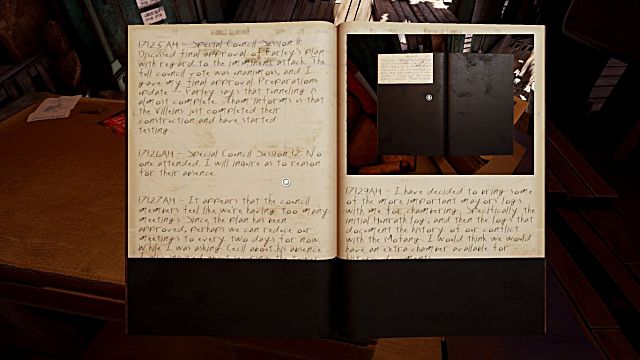 17125AH - Special Council Session 11:
Discussed final approval of Farley's plan
with regard to the imminent attack. The
full council vote was unanimous, and I
gave my final approval. Preparations
update - Farley says that tunneling is
almost complete. Cham informs us that
the Villeins just completed their
construction and have started
testing.
17126AH - Special Council Session 12: No
one attended. I will inquire as to reason
for their absence.
17127AH - It appears that the council
members feel like we're having too many
meetings. Since the plan has been
approved, perhaps we can reduce our
meetings to every two days for now.
While I was asking Cecil about his absence
17129AH - I have decided to bring some
of the more important mayor's logs
with me for chambering. Specifically, the
initial Hunrath log, and then the logs that
document the history of our conflict
with the Mofang. I would think we would
have an extra chamber available for